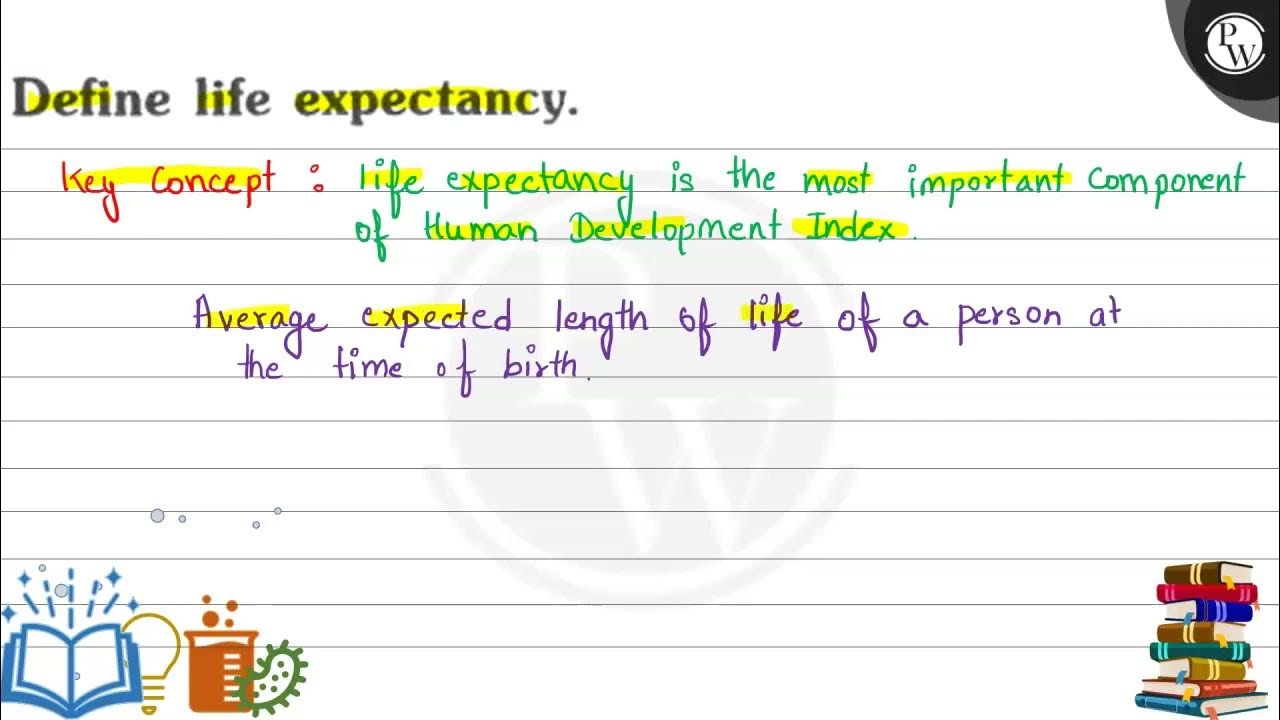 PW
Define life expectancy.
Key Concept : life expectancy is the most important Component
of Human Development Index.
Average expected length of life of a person at
the time of birth.
PW